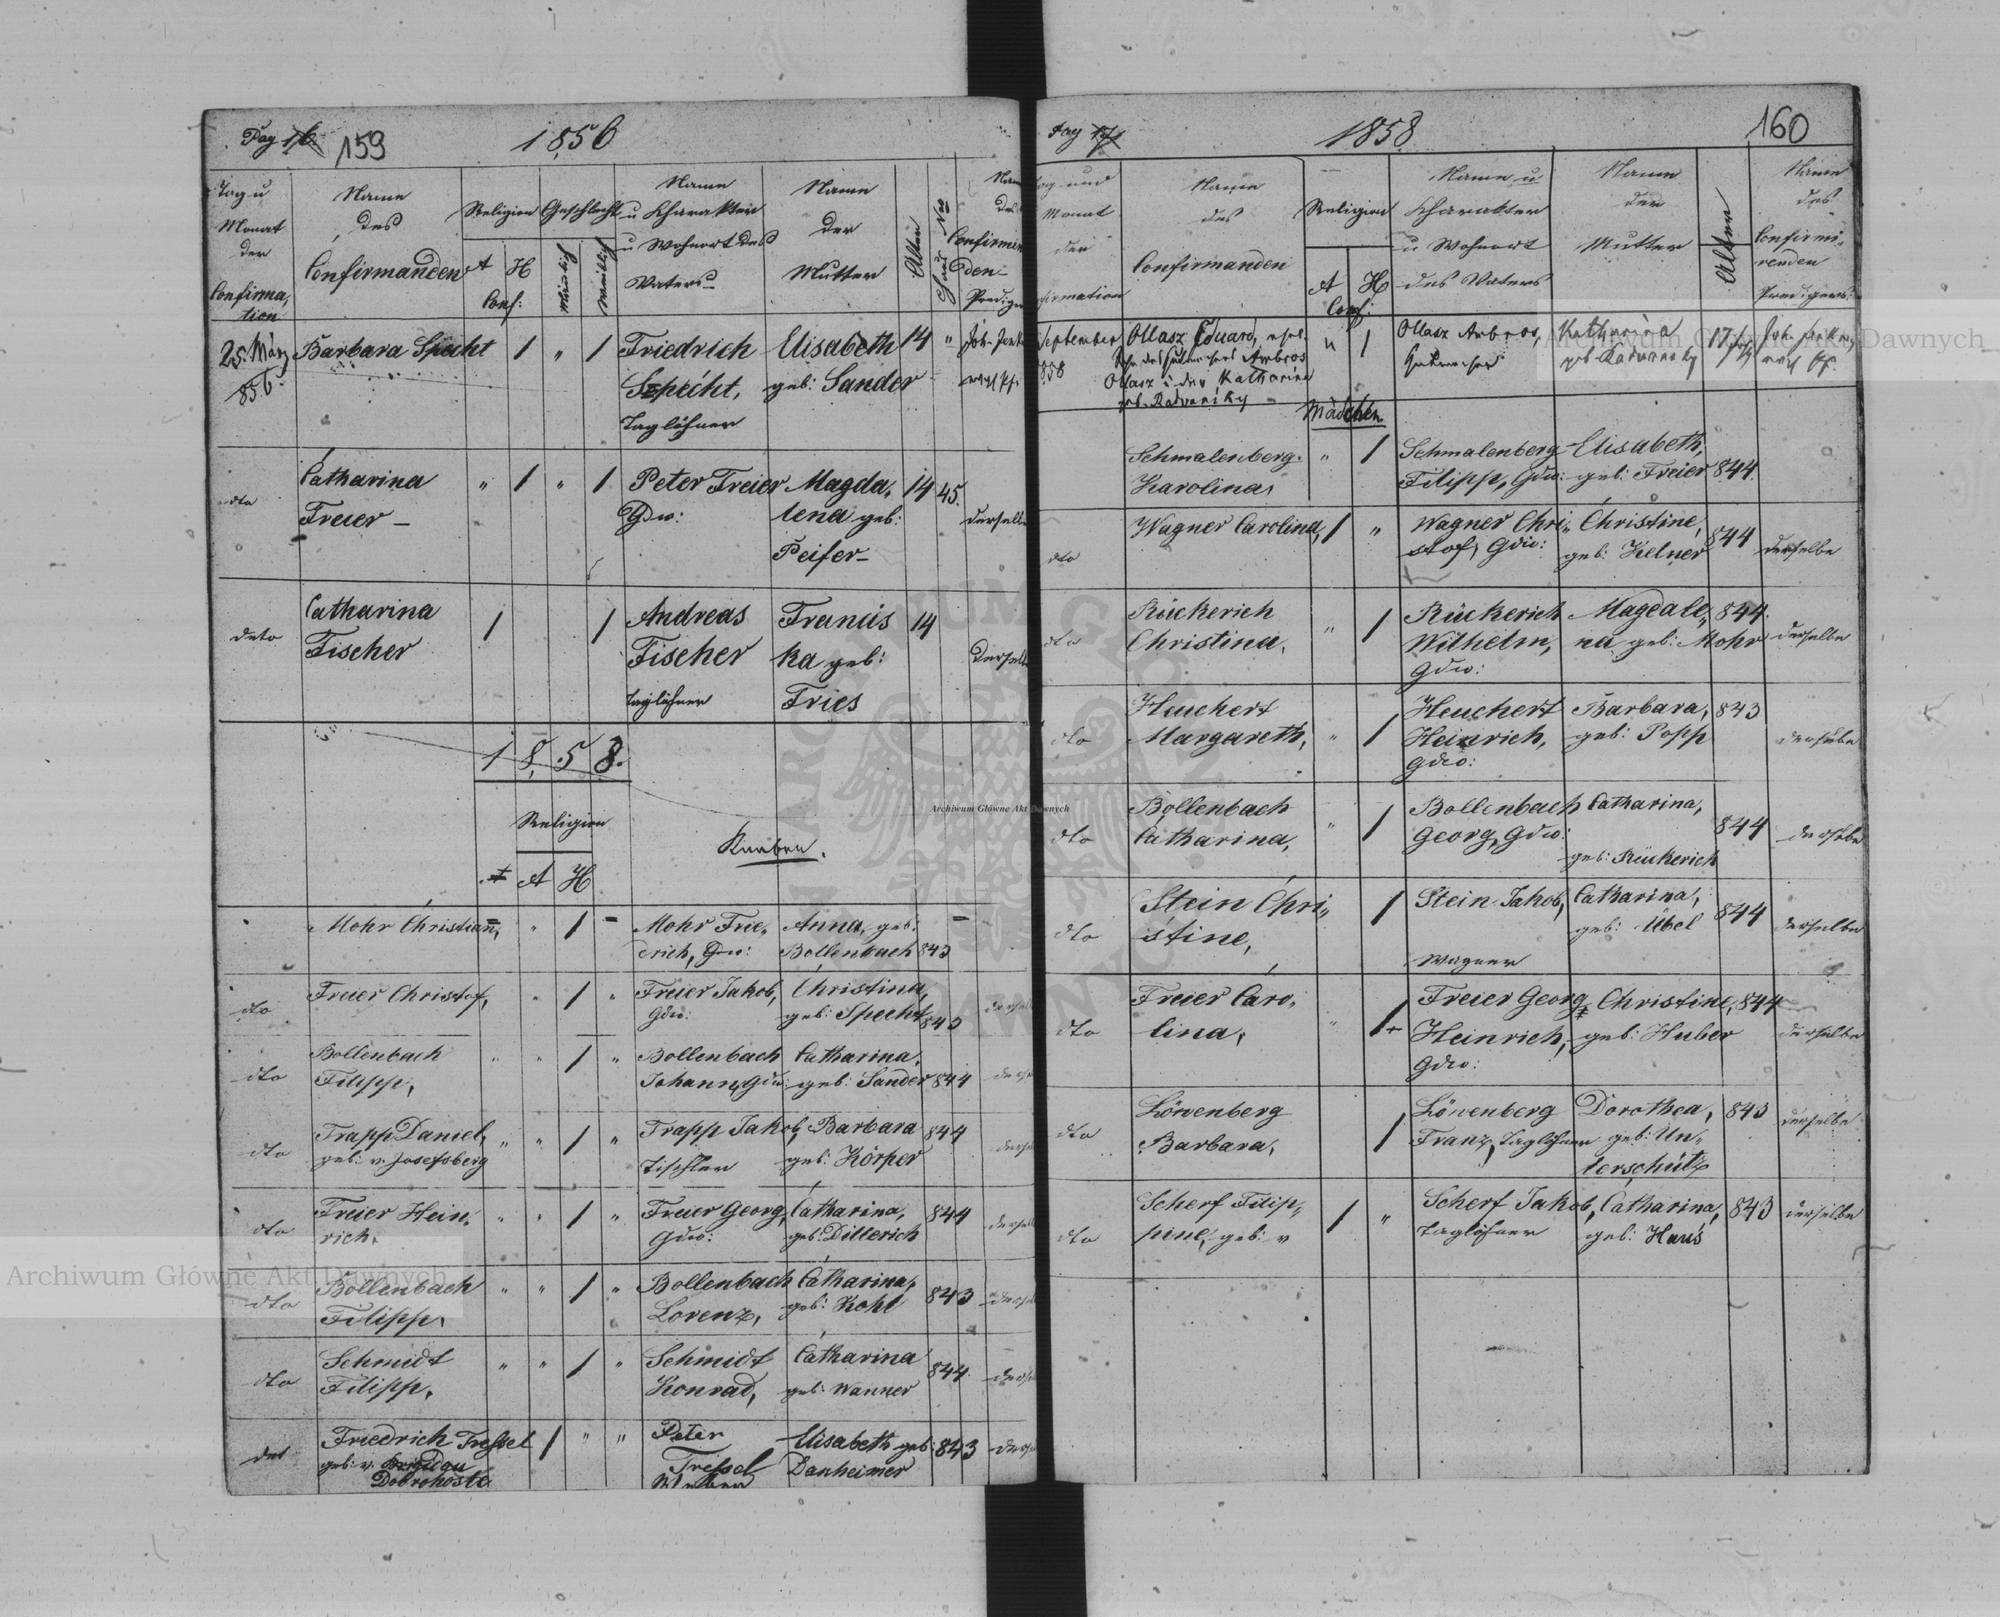 Pag 16 159
1856
Tag u
Monat
der
Confirma-
tion
Name
des
Confirmanden
Religion
A H
Conf:
Geschlecht
männlich
weiblich
Name
u Kharakter
u Wohnort des
Vaters
Name
der
Mutter
Alter
Haus Nro
Name
des
Confirmiren
den
Prediger
25. März
856.
Barbara Specht 1 " 1
Friedrich
Specht,
Taglöhner
Elisabeth
geb: Sander
14 "
Joh. Jenkn
evgl Pf.
dto
Catharina
Freier
" 1 " 1
Peter Freier
Gdw:
Magda-
lena geb:
Peifer
14 45.
derselbe
deto
Catharina
Fischer
1 1
Andreas
Fischer
Taglöhner
Francis
ka geb:
Fries
14
derselbe
1858.
Religion
A H
Knaben.
Mohr Christian, " 1
Mohr Frie-
drich, Gdw:
Anna, geb:
Bollenbach 843
dto Freier Christof, " 1 "
Freier Jakob,
Gdw:
Christina,
geb: Specht 843
dto Bollenbach
Filipp,
" " 1 "
Bollenbach
Johann, Gdw:
Catharina,
geb: Sander 844
dto Trapp Daniel,
geb: v. Josefsberg
" " 1 "
Trapp Jakob,
Tischler
Barbara
geb: Körper
844
dto Freier Hein-
rich,
" " 1 "
Freier Georg,
Gdw:
Catharina,
geb: Dillerich
844
dto Bollenbach
Filipp,
" " 1 "
Bollenbach
Lorenz,
Catharina,
geb: Kohl
843
dto Schmidt
Filipp,
" " 1 "
Schmidt
Konrad,
Catharina
geb: Wanner
844
det Friedrich Tressel
geb: v.
Dobrohostc
1 " "
Peter
Tressel
Weber
Elisabeth geb:
Danheimer
843
Pag 17
1858
160
Tag und
Monat
der
Confirmation
Name
des
Confirmanden
Religion
A H
Conf:
Name u
Kharakter
u Wohnort
des Vaters
Name
der
Mutter
Alter
Name
des
Confirmi-
renden
Predigers
September
858
Ollasz Eduard, ehel.
Ambros
Ollasz u der Katharina
geb. Radvansky
" 1
Ollasz Ambros,
Katharina
geb Radvansky
17
Joh. Jenkn,
evgl Pf.
Mädchen
Schmalenberg
Karolina,
" 1
Schmalenberg
Filipp, Gdw:
Elisabeth,
geb: Freier 844.
dto Wagner Carolina, 1 "
Wagner Chri-
stof, Gdw:
Christine,
geb: Kelner
844
derselbe
dto Rückerich
Christina,
" 1
Rückerich
Wilhelm,
Gdw:
Magdale-
na geb: Mohr
844.
derselbe
dto Heuchert
Margareth,
" 1
Heuchert
Heinrich,
Gdw:
Barbara,
geb: Popp
843
derselbe
dto Bollenbach
Catharina,
" 1
Bollenbach
Georg, Gdw:
Catharina,
geb: Rückerich
844
derselbe
dto Stein Chri-
stine,
1
Stein Jakob,
Wagner
Catharina,
geb: Übel
844
derselbe
dto Freier Caro-
lina,
" 1
Freier Georg
Heinrich,
Gdw:
Christine,
geb: Huber
844
derselbe
dto Löwenberg
Barbara,
1
Löwenberg
Franz, Taglöhner
Dorothea,
geb: Un-
terschütz
843
derselbe
dto Scherf Filip-
pine, geb: v
1 "
Scherf Jakob,
Taglöhner
Catharina,
geb: Haus
843
derselbe
Archiwum Główne Akt Dawnych
Archiwum Główne Akt Dawnych
Archiwum Główne Akt Dawnych